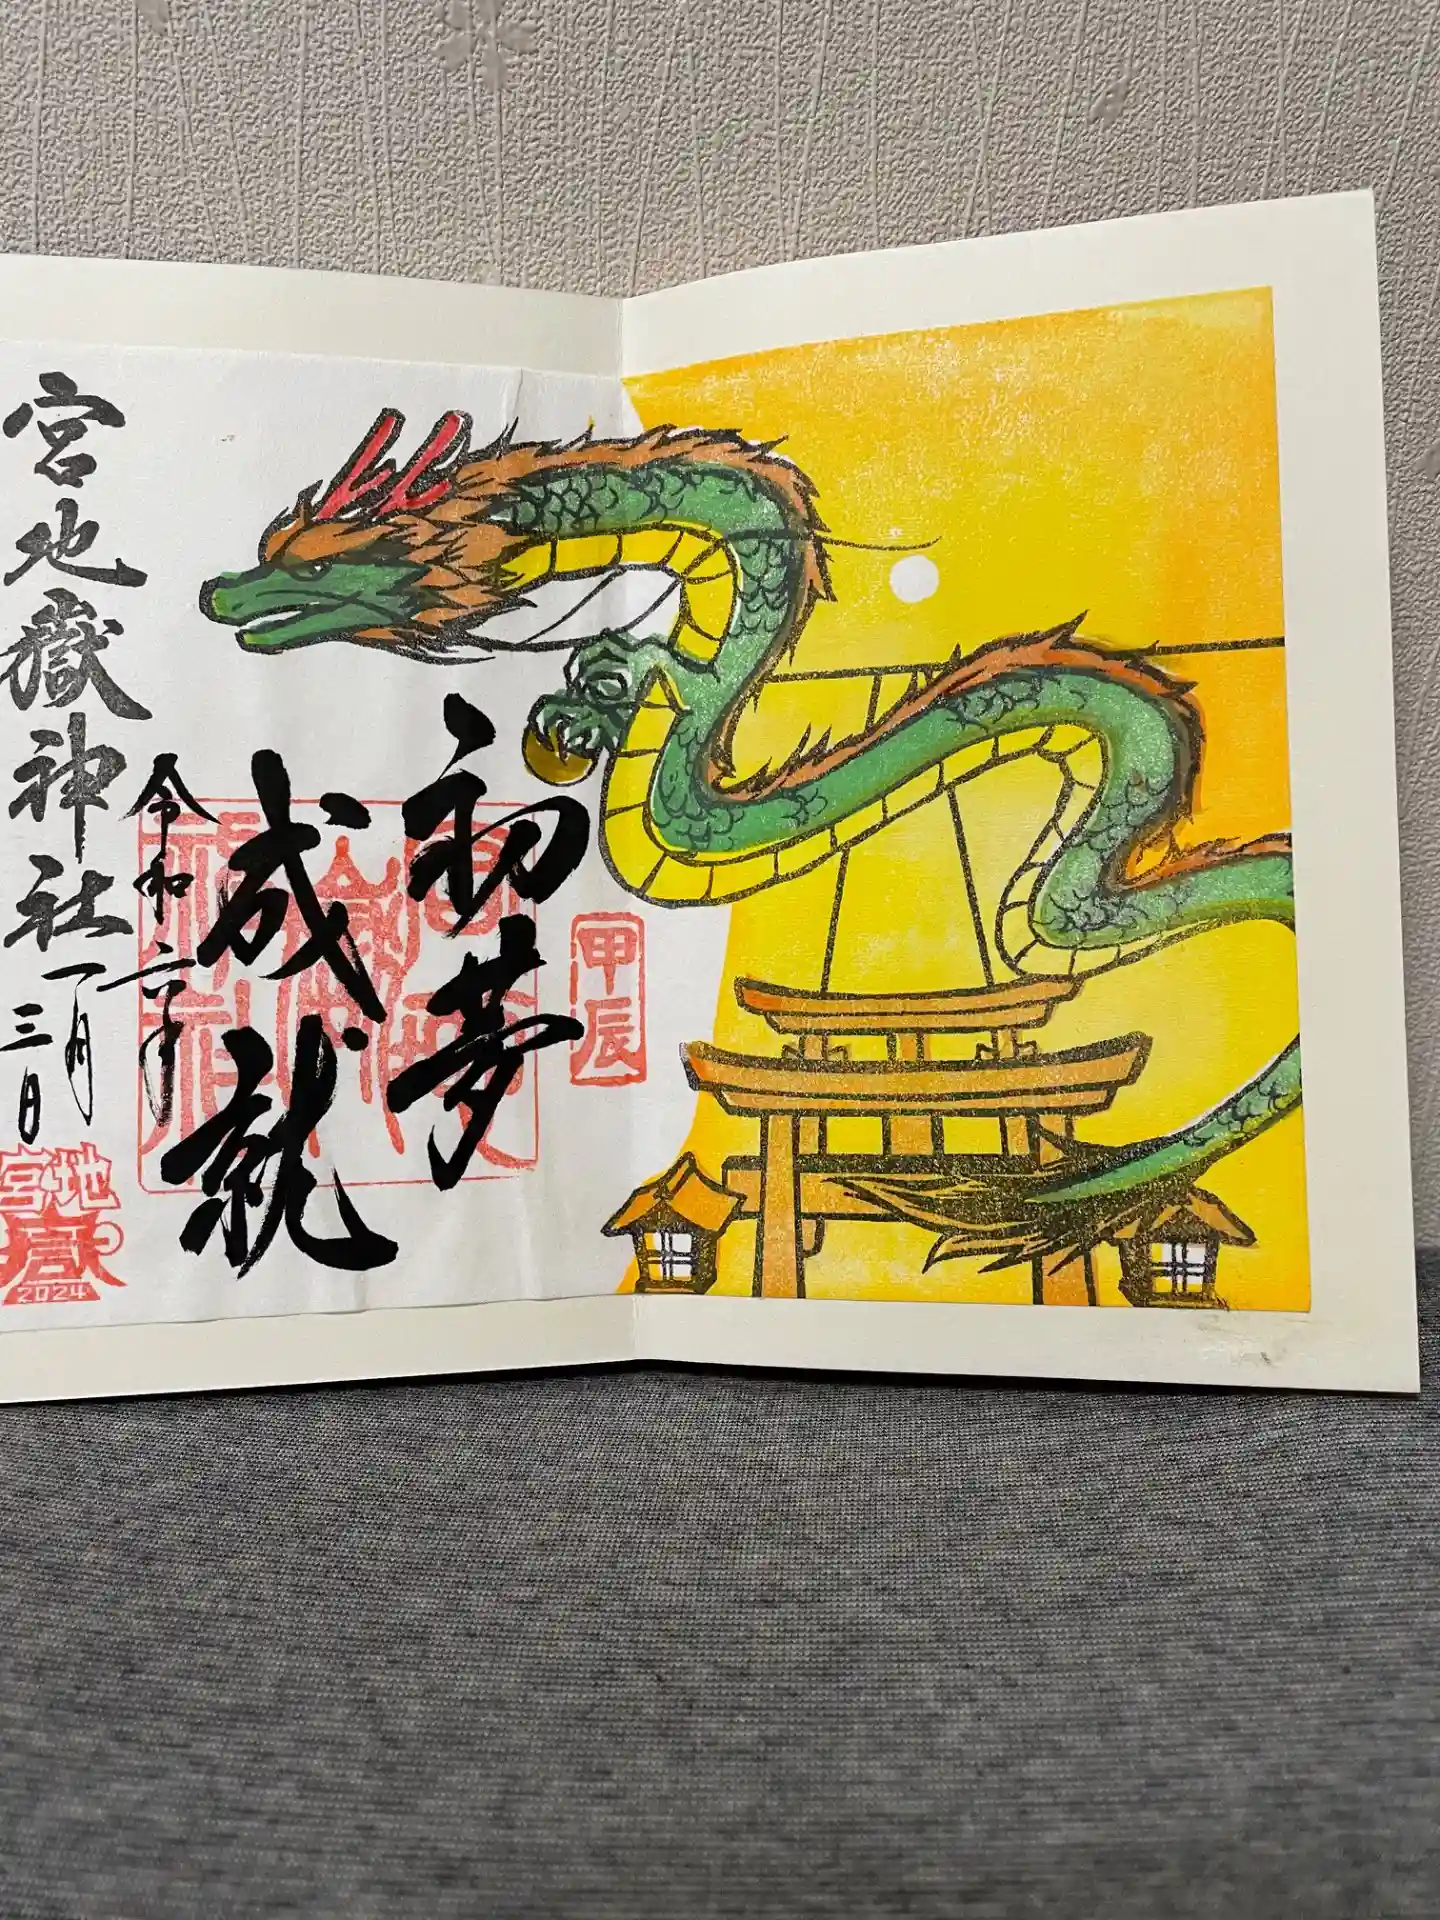 初夢
成就
甲辰
令和六年
一月
三日
宮地嶽神社
宮地
嶽
2024